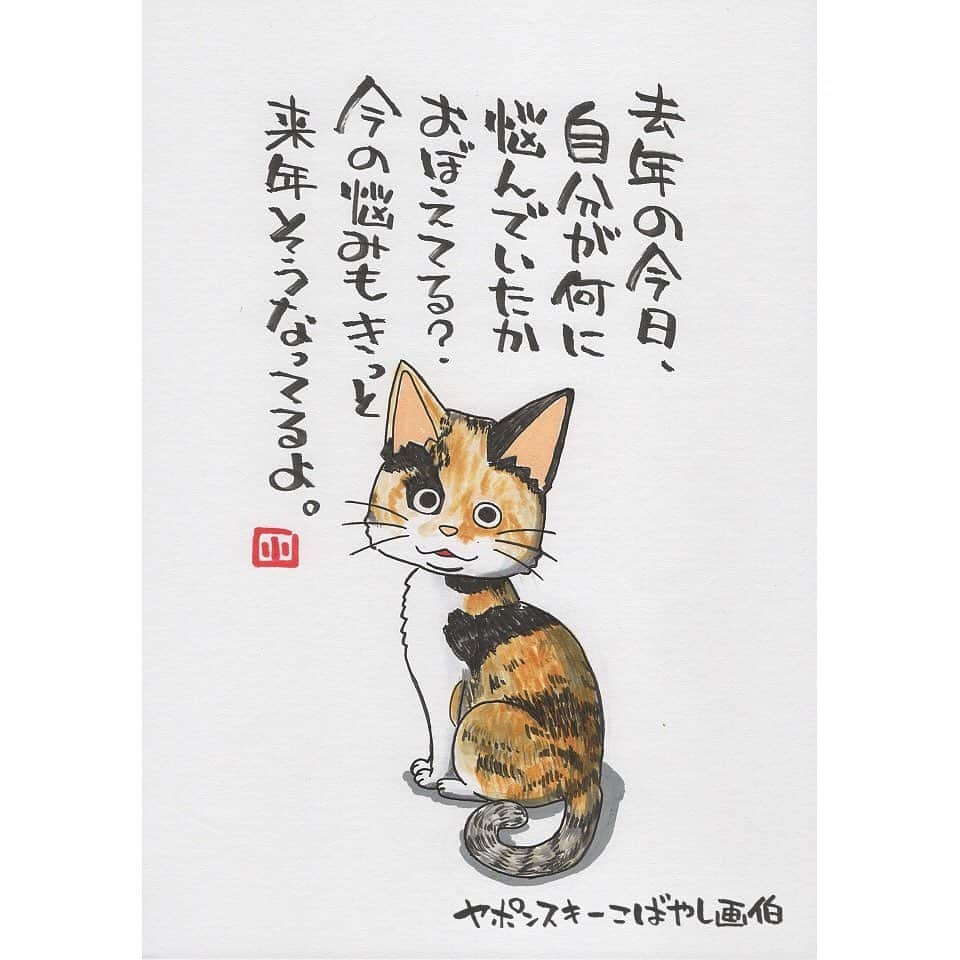 去年の今日、
自分が何に
悩んでいたか
おぼえてる?
今の悩みもきっと
来年そうなってるよ。
小
ヤポンスキーこばやし画伯